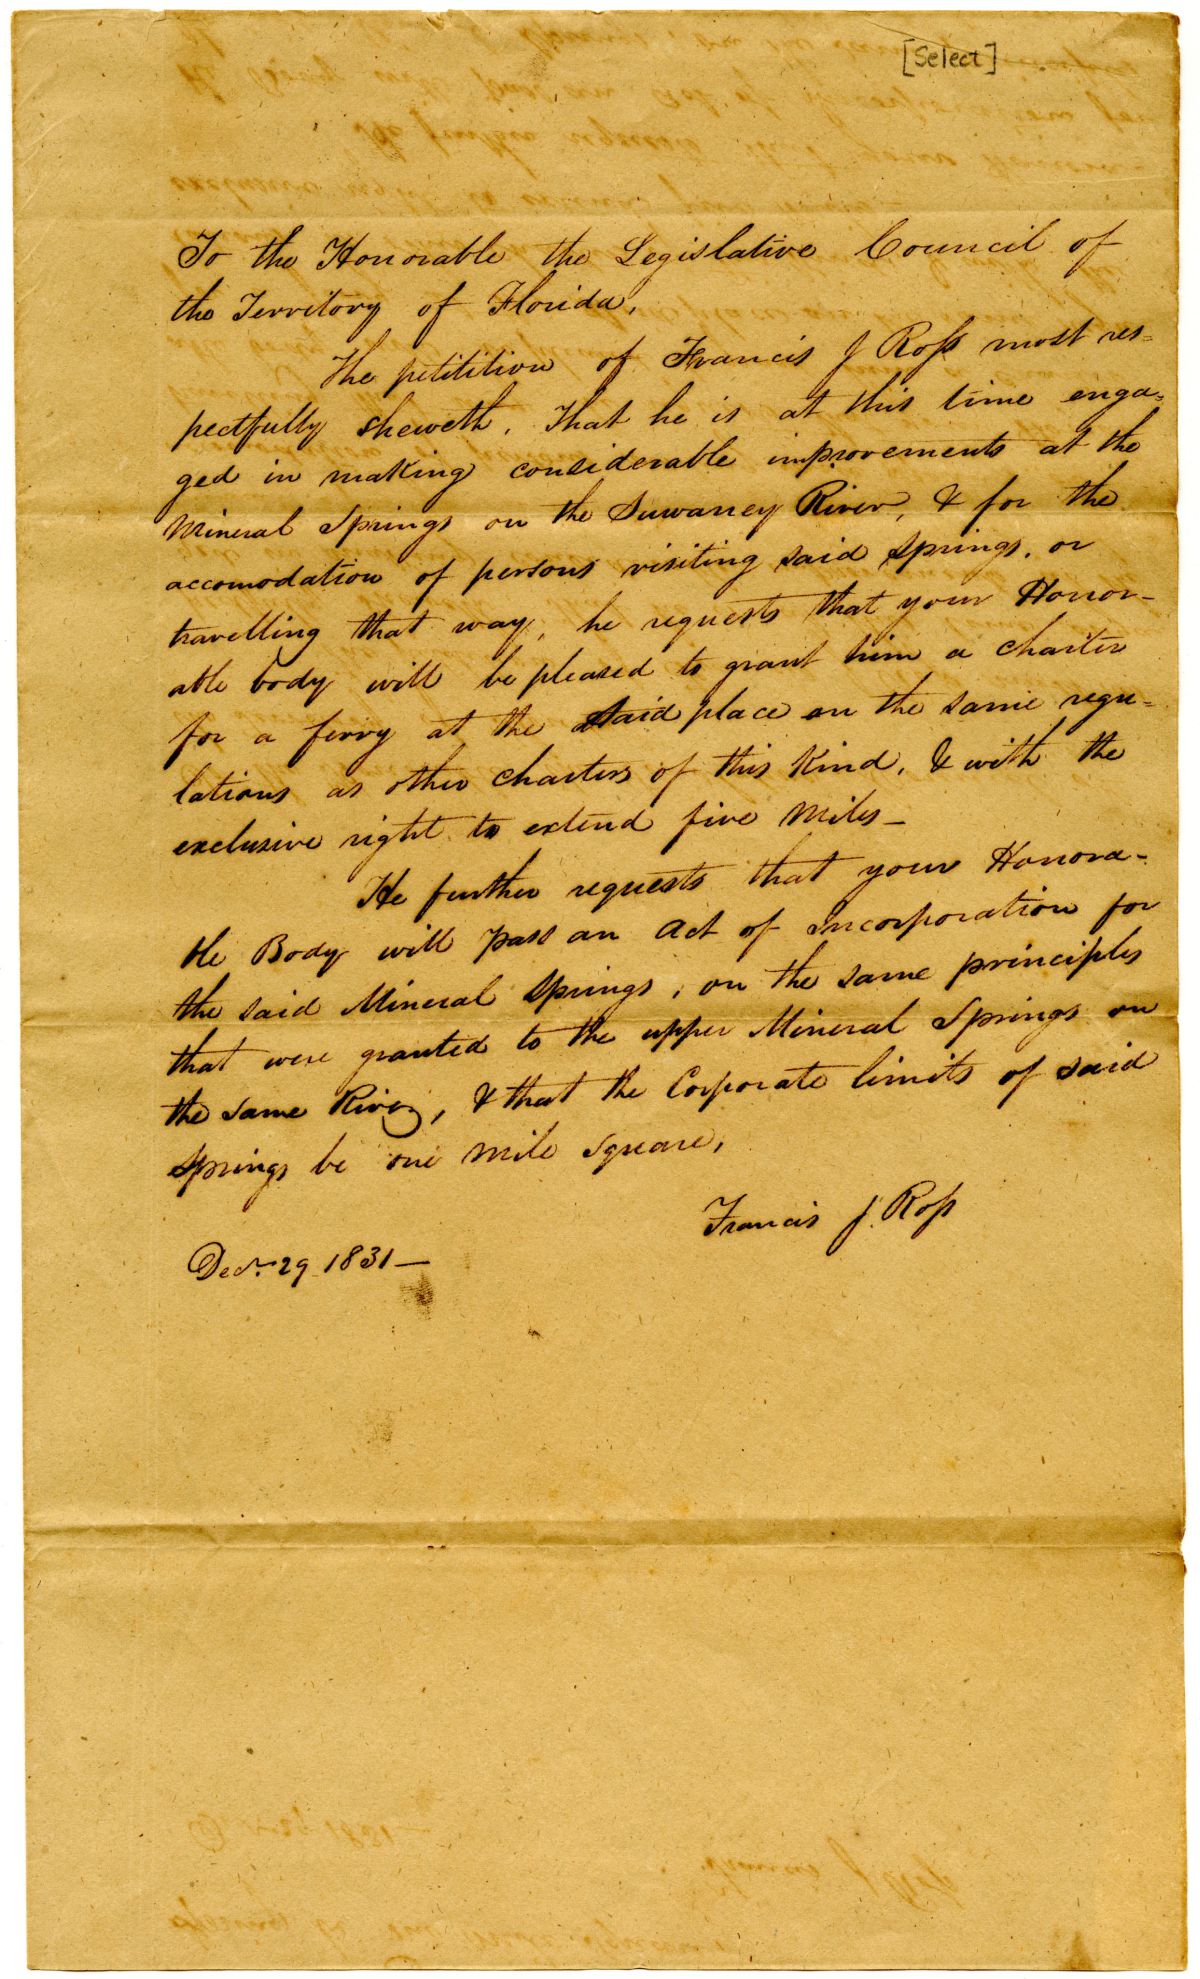 [Select]
To the Honorable the Legislative Council of
the Territory of Florida,
The petitition of Francis J Ross most res=
pectfully sheweth, That he is at this time enga=
ged in making considerable improvements at the
Mineral Springs on the Suwaney River, & for the
accomodation of persons visiting said Springs, or
travelling that way, he requests that your Honor-
able body will be pleased to grant him a charter
for a ferry at the said place on the same regu=
lations as other charters of this kind, & with the
exclusive right to extend five miles—
He further requests that your Honora-
ble Body will pass an act of incorporation for
the said Mineral Springs, on the same principles
that were granted to the upper Mineral Springs on
the same River, & that the Corporate limits of said
Springs be one mile square,
Francis J. Ross
Decr. 29 1831—